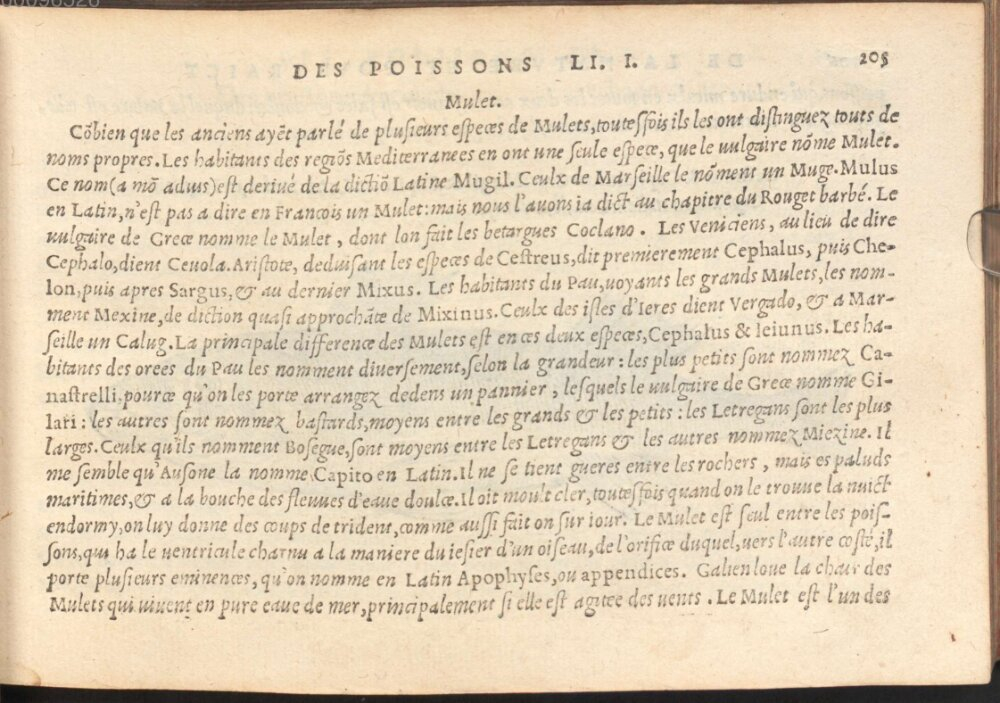 DES POISSONS LI. I. 205
Mulet.
Cōbien que les anciens ayēt parlé de plusieurs especes de Mulets,toutesfois ils les ont distinguez touts de
noms propres.Les habitants des regiōs Mediterranees en ont une seule espece, que le uulgaire nōme Mulet.
Ce nom(a mō aduis)est deriué de la dictiō Latine Mugil.Ceulx de Marseille le nōment un Muge.Mulus
en Latin,n'est pas a dire en Francois un Mulet:mais nous l'auons ia dict au chapitre du Rouget barbé. Le
uulgaire de Grece nomme le Mulet , dont lon fait les betargues Coclano . Les Veniciens, au lieu de dire
Cephalo,dient Ceuola.Aristote, deduisant les especes de Cestreus,dit premierement Cephalus, puis Che-
lon,puis apres Sargus,& au dernier Mixus. Les habitants du Pau,uoyants les grands Mulets,les nom-
ment Mexine,de diction quasi approchāte de Mixinus.Ceulx des isles d'Ieres dient Vergado, & a Mar-
seille un Calug.La principale difference des Mulets est en ces deux especes,Cephalus & Ieiunus. Les ha-
bitants des orees du Pau les nomment diuersement,selon la grandeur : les plus petits sont nommez Ca-
nastrelli,pource qu'on les porte arrangez dedens un pannier , lesquels le uulgaire de Grece nomme Gi-
lari : les autres sont nommez bastards,moyens entre les grands & les petits : les Letregans sont les plus
larges.Ceulx qu'ils nomment Bosegue,sont moyens entre les Letregans & les autres nommez Miezine. Il
me semble qu'Ausone la nomme Capito en Latin.Il ne se tient gueres entre les rochers , mais es paluds
maritimes,& a la bouche des fleuues d'eaue doulce.Il oit moult cler,toutesfois quand on le trouue la nuict
endormy,on luy donne des coups de trident,comme aussi fait on sur iour. Le Mulet est seul entre les pois-
sons,qui ha le uentricule charnu a la maniere du iesier d'un oiseau,de l'orifice duquel,uers l'autre costé,il
porte plusieurs eminences, qu'on nomme en Latin Apophyses,ou appendices. Galien loue la chair des
Mulets qui uiuent en pure eaue de mer,principalement si elle est agitee des uents . Le Mulet est l'un des